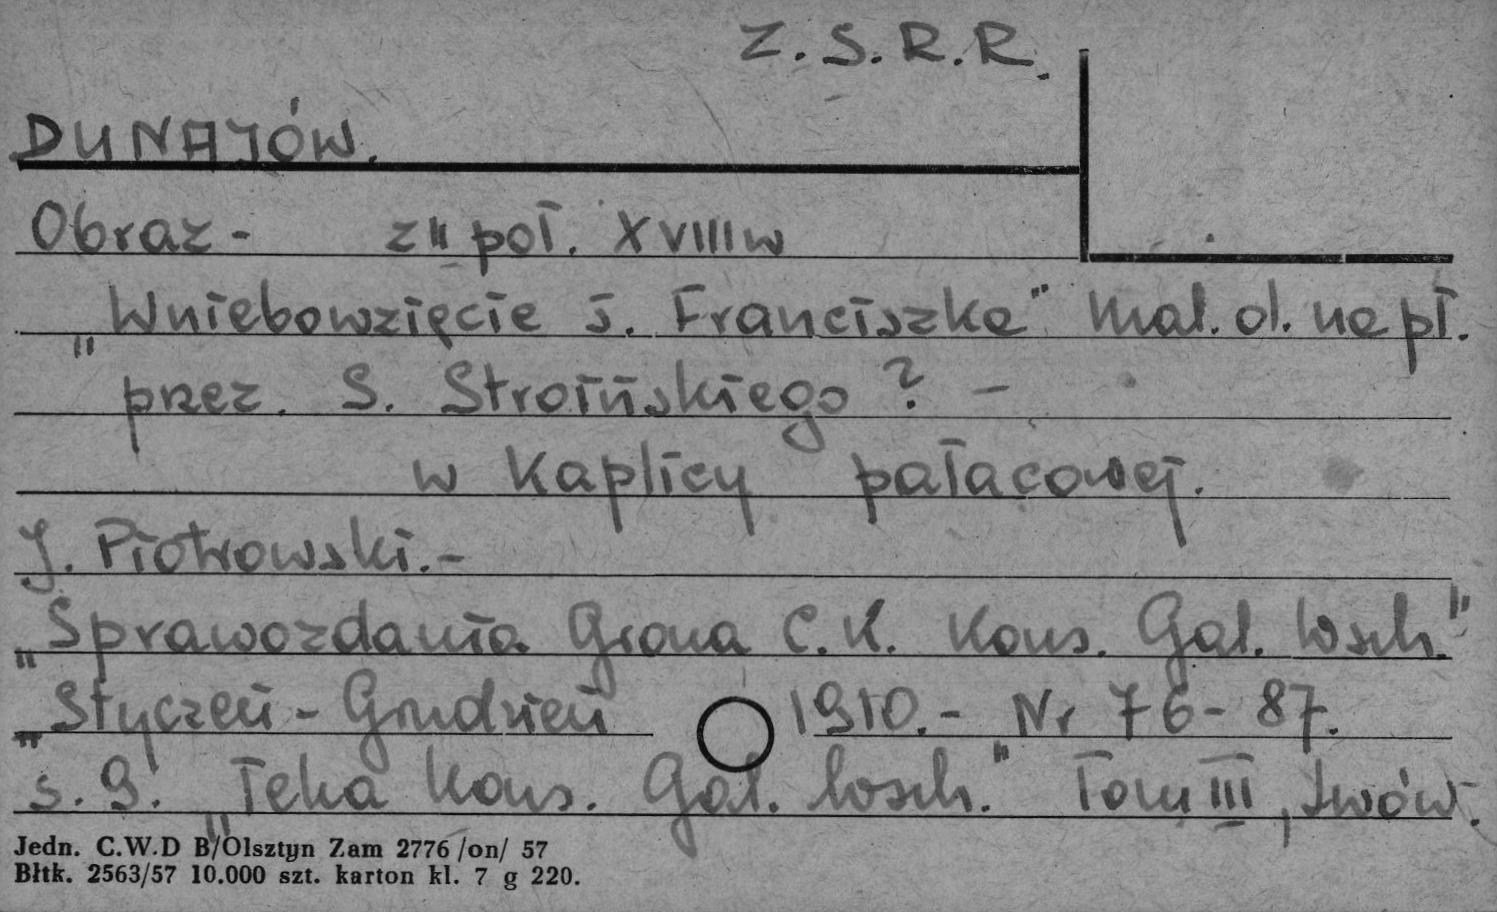 Z.S.R.R.
DUNAJÓW.
Obraz - z II poł. XVIII w
"Wniebowzięcie ś. Franciszka" mal. ol. na pł.
przez. S. Stroińskiego ? -
w kaplicy pałacowej.
J. Piotrowski.-
"Sprawozdania Grona C.K. Kons. Gal. Wsch."
"Styczeń - Grudzień 1910.- Nr 76-87.
s. 9. "Teka Kons. Gal. Wsch." Tom III, Lwów.
Jedn. C.W.D B/Olsztyn Zam 2776 /on/ 57
Błtk. 2563/57 10.000 szt. karton kl. 7 g 220.